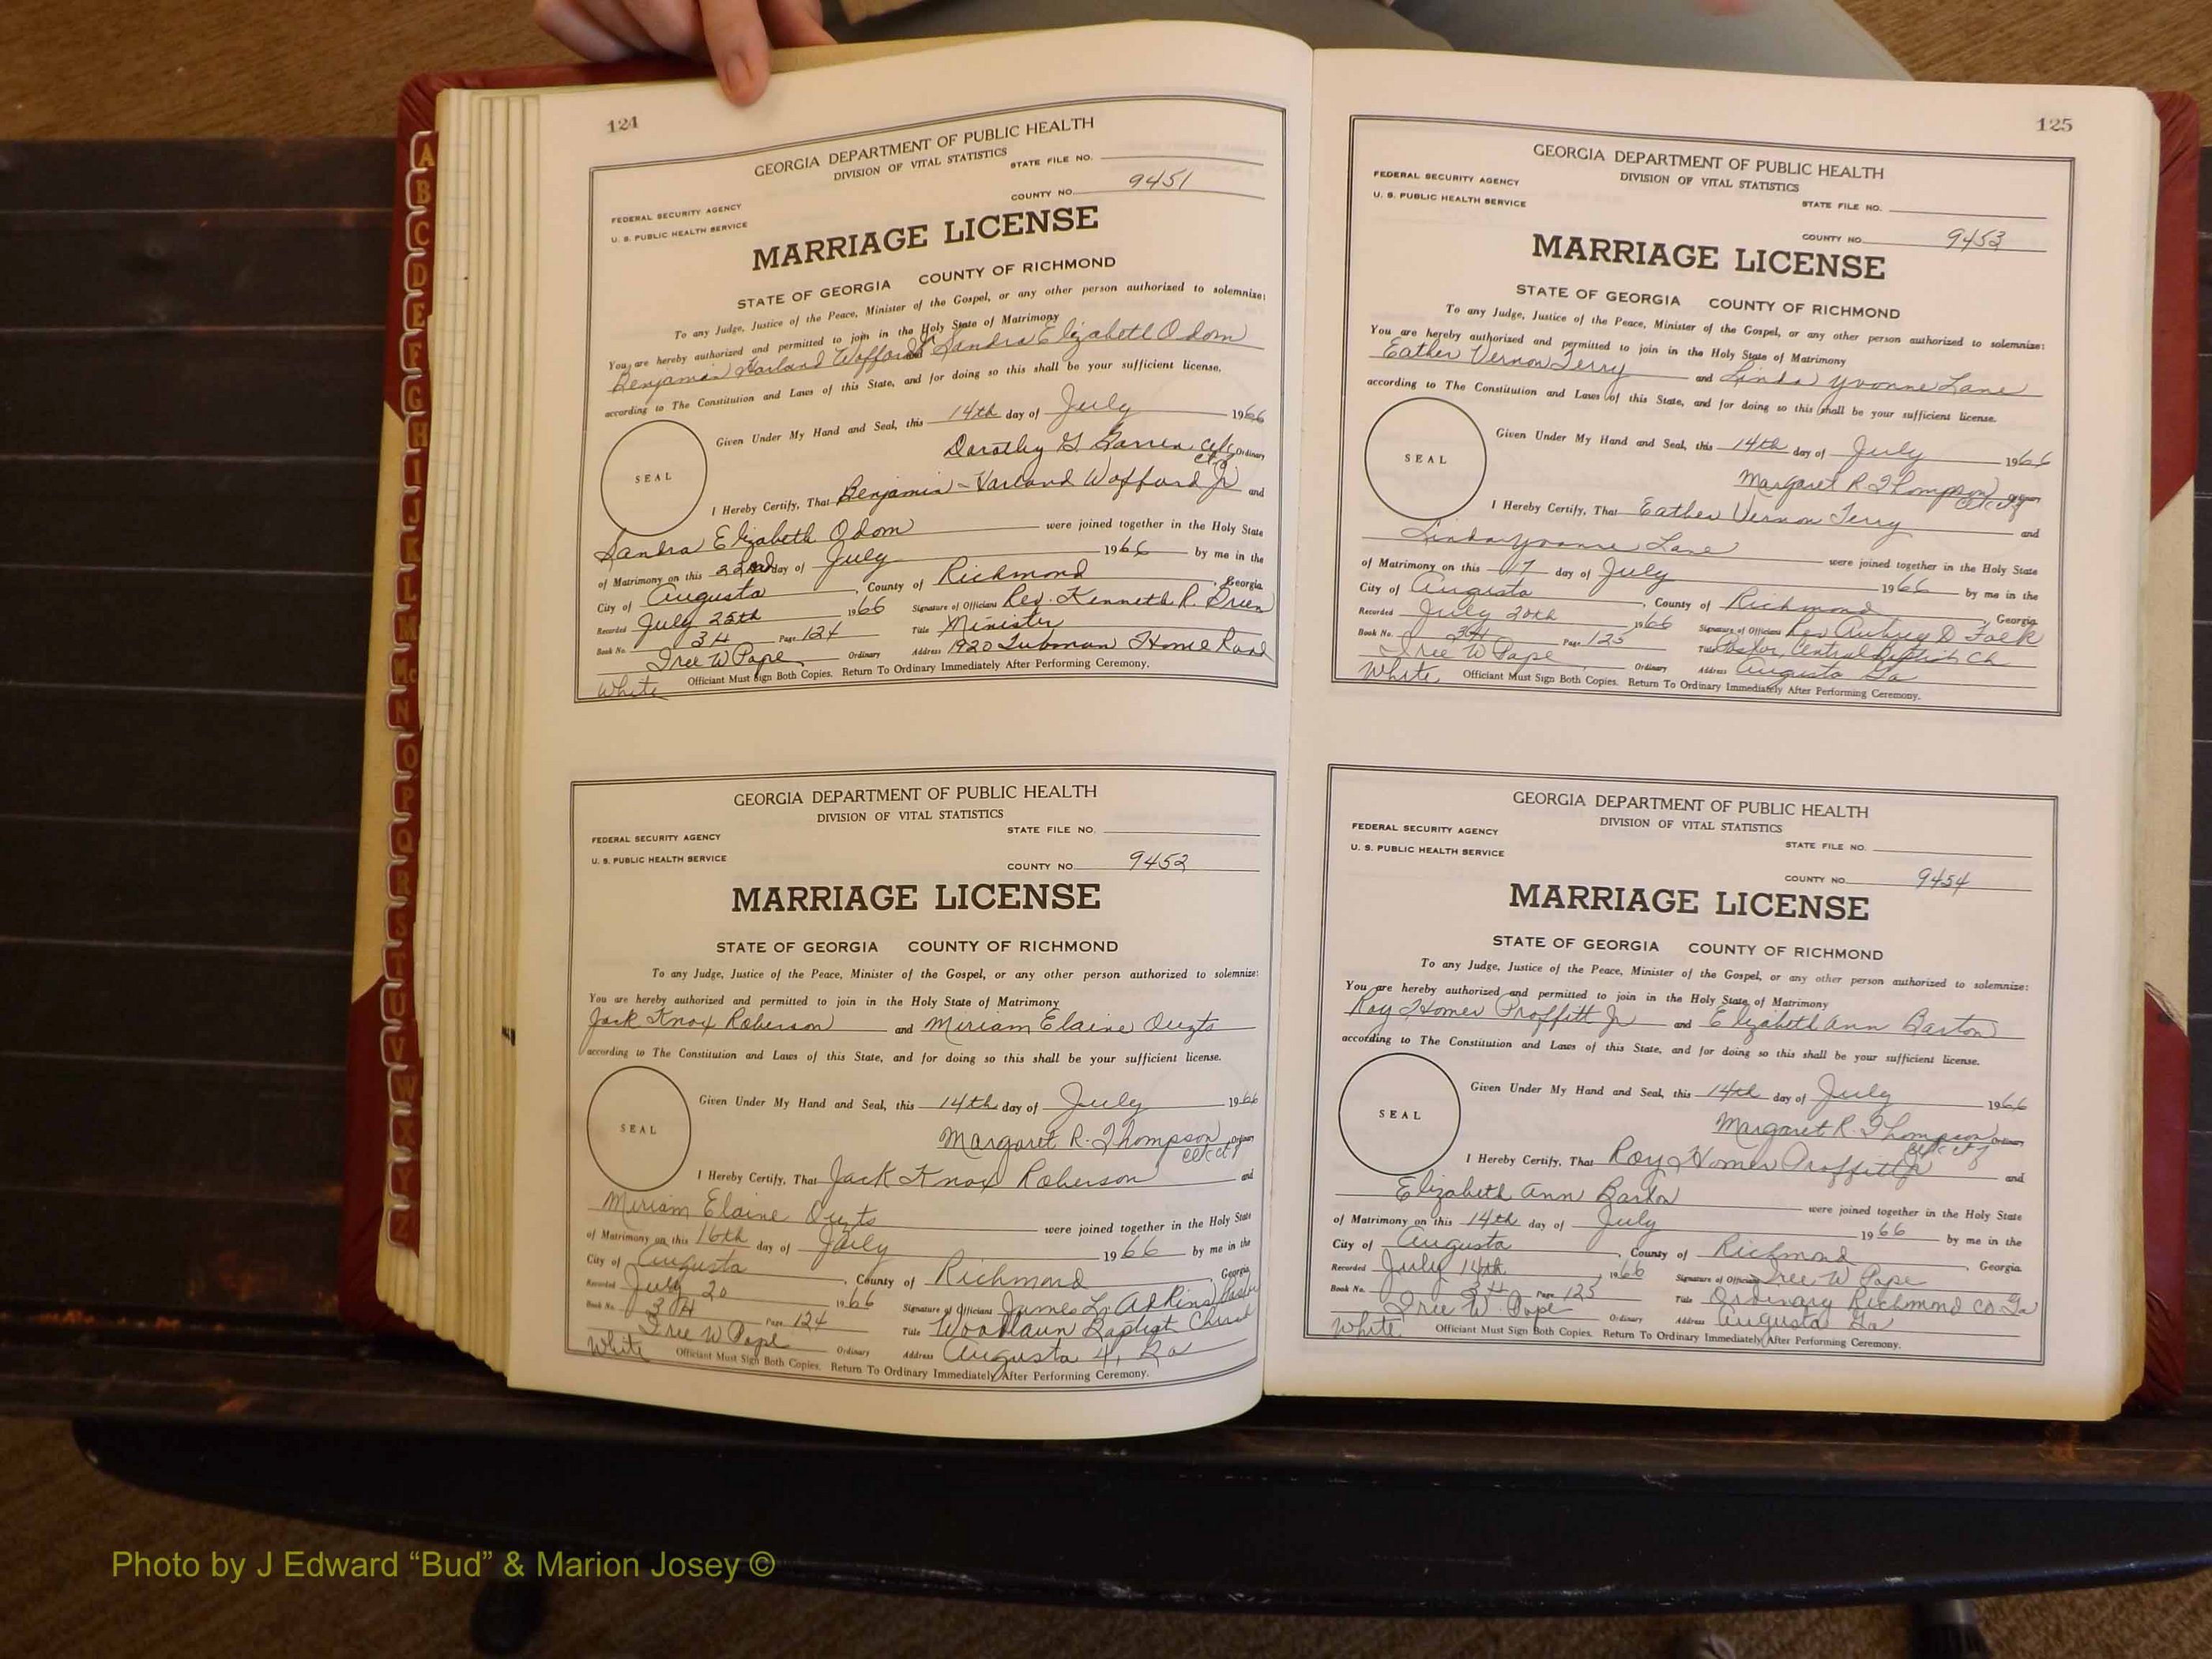 124
GEORGIA DEPARTMENT OF PUBLIC HEALTH
DIVISION OF VITAL STATISTICS
STATE FILE NO.
FEDERAL SECURITY AGENCY
U. S. PUBLIC HEALTH SERVICE
COUNTY NO. 9451
MARRIAGE LICENSE
STATE OF GEORGIA COUNTY OF RICHMOND
To any Judge, Justice of the Peace, Minister of the Gospel, or any other person authorized to solemnize:
You are hereby authorized and permitted to join in the Holy State of Matrimony
Benjamin Harland Wofford Jr and Sandra Elizabeth Odom
according to The Constitution and Laws of this State, and for doing so this shall be your sufficient license.
Given Under My Hand and Seal, this 14th day of July 1966
SEAL
Dorothy G. Ordinary
I Hereby Certify, That Benjamin Harland Wofford Jr and
Sandra Elizabeth Odom were joined together in the Holy State
of Matrimony on this 22nd day of July 1966 by me in the
City of Augusta, County of Richmond, Georgia
Recorded July 25th 1966 Signature of Officiant Rev. Kenneth R.
Book No. 3H Page 124 Title Minister
Ordinary Address 1920 Tubman Home Road
White Officiant Must Sign Both Copies. Return To Ordinary Immediately After Performing Ceremony.
GEORGIA DEPARTMENT OF PUBLIC HEALTH
DIVISION OF VITAL STATISTICS
STATE FILE NO.
FEDERAL SECURITY AGENCY
U. S. PUBLIC HEALTH SERVICE
COUNTY NO. 9452
MARRIAGE LICENSE
STATE OF GEORGIA COUNTY OF RICHMOND
To any Judge, Justice of the Peace, Minister of the Gospel, or any other person authorized to solemnize:
You are hereby authorized and permitted to join in the Holy State of Matrimony
Jack Knox Roberson and Miriam Elaine Ouzts
according to The Constitution and Laws of this State, and for doing so this shall be your sufficient license.
Given Under My Hand and Seal, this 14th day of July 1966
SEAL
Margaret R. Thompson Ordinary
I Hereby Certify, That Jack Knox Roberson and
Miriam Elaine Ouzts were joined together in the Holy State
of Matrimony on this 16th day of July 1966 by me in the
City of Augusta, County of Richmond, Georgia
Recorded July 20 1966 Signature of Officiant James L. Adkins Pastor
Book No. 3H Page 124 Title Woodlawn Baptist Church
Ordinary Address Augusta 4, Ga
White Officiant Must Sign Both Copies. Return To Ordinary Immediately After Performing Ceremony.
125
GEORGIA DEPARTMENT OF PUBLIC HEALTH
DIVISION OF VITAL STATISTICS
FEDERAL SECURITY AGENCY
U. S. PUBLIC HEALTH SERVICE
STATE FILE NO.
COUNTY NO. 9453
MARRIAGE LICENSE
STATE OF GEORGIA COUNTY OF RICHMOND
To any Judge, Justice of the Peace, Minister of the Gospel, or any other person authorized to solemnize:
You are hereby authorized and permitted to join in the Holy State of Matrimony
Eather Vernon Terry and Linda Yvonne Lane
according to The Constitution and Laws of this State, and for doing so this shall be your sufficient license.
Given Under My Hand and Seal, this 14th day of July 1966
SEAL
Margaret R. Thompson
I Hereby Certify, That Eather Vernon Terry and
Linda Yvonne Lane were joined together in the Holy State
of Matrimony on this 17 day of July 1966 by me in the
City of Augusta, County of Richmond, Georgia
Recorded July 20th 1966 Signature of Officiant Rev Aubrey D Falk
Book No. 3H Page 125 Title Pastor, Central Baptist Ch
Ordinary Address Augusta Ga
White Officiant Must Sign Both Copies. Return To Ordinary Immediately After Performing Ceremony.
GEORGIA DEPARTMENT OF PUBLIC HEALTH
DIVISION OF VITAL STATISTICS
FEDERAL SECURITY AGENCY
U. S. PUBLIC HEALTH SERVICE
STATE FILE NO.
COUNTY NO. 9454
MARRIAGE LICENSE
STATE OF GEORGIA COUNTY OF RICHMOND
To any Judge, Justice of the Peace, Minister of the Gospel, or any other person authorized to solemnize:
You are hereby authorized and permitted to join in the Holy State of Matrimony
Roy Homer Proffitt Jr and Elizabeth Ann Barton
according to The Constitution and Laws of this State, and for doing so this shall be your sufficient license.
Given Under My Hand and Seal, this 14th day of July 1966
SEAL
Margaret R. Thompson Ordinary
I Hereby Certify, That Roy Homer Proffitt Jr and
Elizabeth Ann Barton were joined together in the Holy State
of Matrimony on this 14th day of July 1966 by me in the
City of Augusta, County of Richmond, Georgia
Recorded July 14th 1966 Signature of Officiant W Pope
Book No. 3H Page 125 Title Ordinary Richmond Co Ga
W. Pope Ordinary Address Augusta Ga
White Officiant Must Sign Both Copies. Return To Ordinary Immediately After Performing Ceremony.
A
B
C
D
E
F
G
H
I
J
K
L
M
Mc
N
O
P
Q
R
S
T
U
V
W
X
Y
Z
Photo by J Edward “Bud” & Marion Josey ©